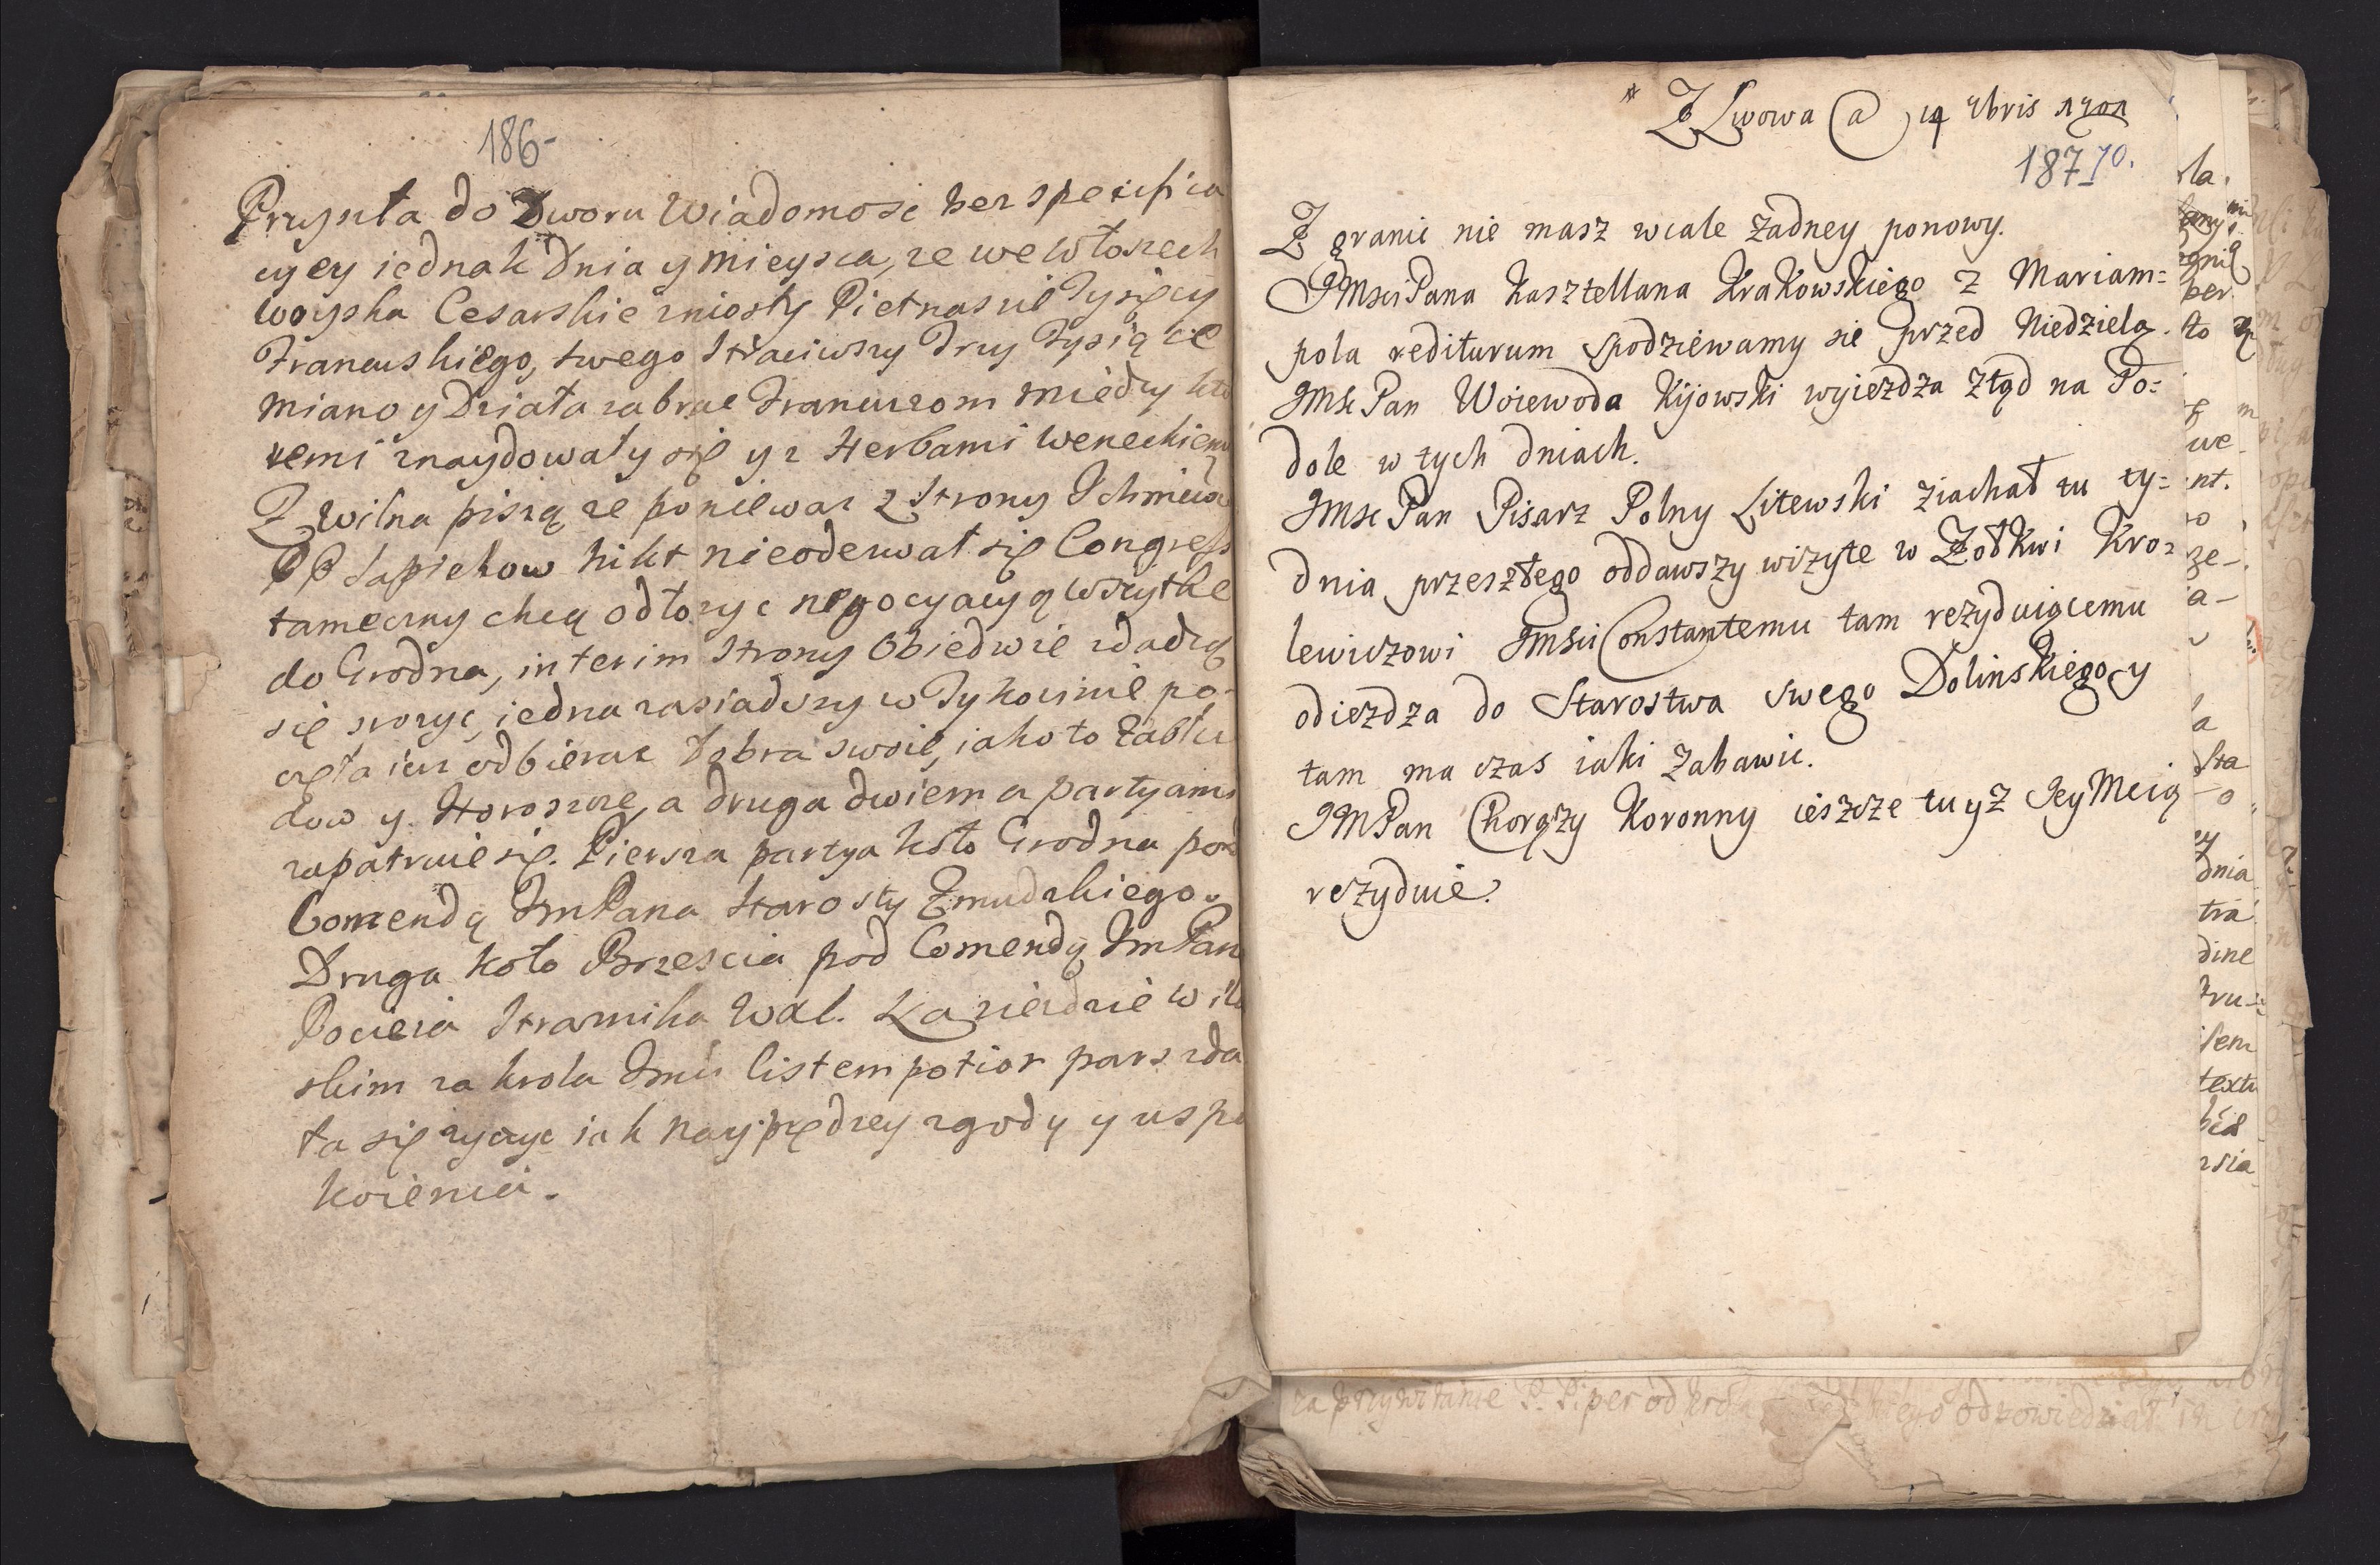 186-
Przyszła do Dworu Wiadomosc bez specifica
cyey iednak Dnia y mieysca, ze we Włoszech
woyska Cesarskie zniosły Pietnascie Tysięcy
Francuskiego, swego straciwszy Trzy Tysiące
miano y Działa zabrac Francuzom miedzy kto
remi znaydowały się y z Herbami Weneckiemi
Z Wilna piszą ze poniewaz z Strony Ichmciow
PP Sapiehow nikt nieoderwał się Congress
tameczny chcą odłozyc negocyacyą wszytkę
do Grodna, interim Strony Obiedwie zdadzą
się srozyc, iedna zasiadszy w Tykocinie po-
częła iuz odbierac Dobra swoie, iako to Zabłu
dow y Horoszcze, a druga dwiema partyami
zapatruie się. Piersza partya koło Grodna pod
Comendą Jm Pana Starosty Zmudzkiego.
Druga koło Brzescia pod Comendą Jm Pan
Pocieia Straznika Wdl. Na ziezdzie Wilen
skim za krola Jmci listem potior pars zda
ła się zyczyc iak nayprędzey zgody y uspo
koienia.
* Z Lwowa @ 14 7bris 1701
187 70.
Z granic nie masz wcale zadney ponowy.
JMsci Pana Kasztellana Krakowskiego z Mariam=
pola rediturum spodziewamy się przed Niedzielą.
JMsc Pan Woiewoda Kijowski wyiezdza ztąd na Po=
dole w tych dniach.
JMsc Pan Pisarz Polny Litewski ziachał tu ty=
dnia przeszłego oddawszy wizytę w Zołkwi Kro=
lewiczowi JMsci Constantemu tam rezyduiącemu
odiezdza do Starostwa swego Dolinskiego y
tam ma czas iaki zabawic.
JM Pan Chorązy Koronny ieszcze tu y z Jey Mcią
rezyduie.
za przywitanie P. Piper od krola
odpowiedział